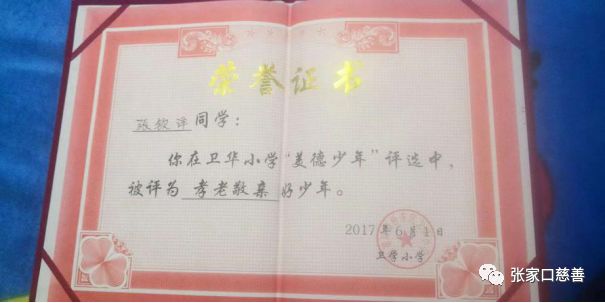 荣誉证书
同学：
你在卫华小学“美德少年”评选中，
被评为 孝老敬亲 好少年。
2017年6月1日
卫华小学
张家口慈善